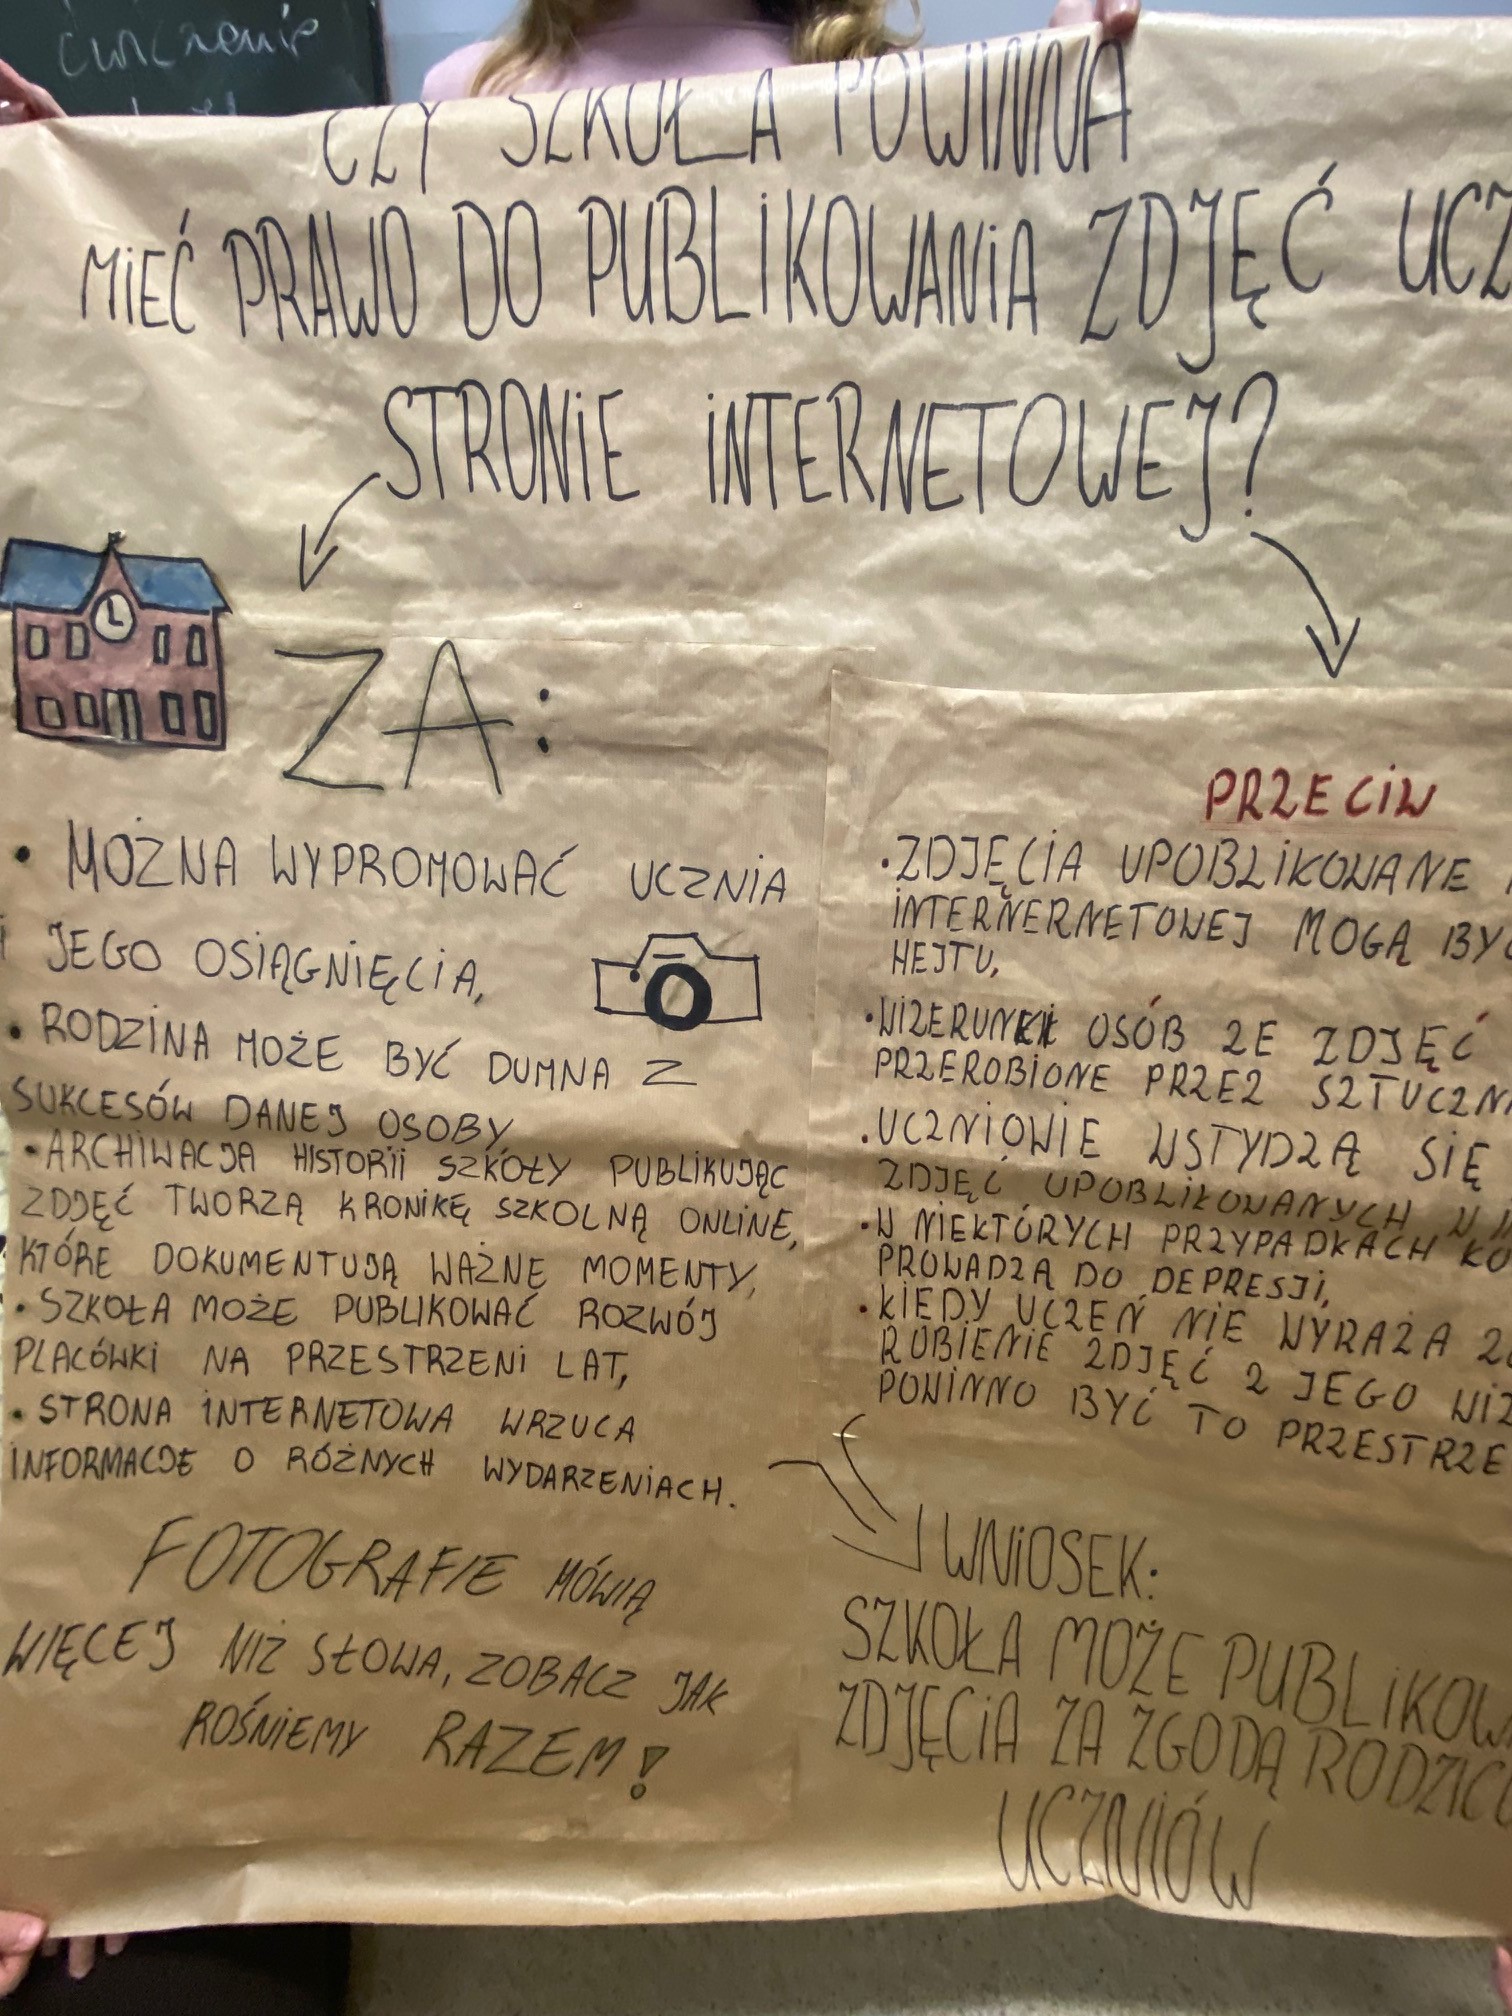 ćwiczenie
CZY SZKOŁA POWINNA
MIEĆ PRAWO DO PUBLIKOWANIA ZDJĘĆ UCZ
STRONIE INTERNETOWEJ?
ZA:
• MOŻNA WYPROMOWAĆ UCZNIA
I JEGO OSIĄGNIĘCIA,
• RODZINA MOŻE BYĆ DUMNA Z
SUKCESÓW DANEJ OSOBY,
• ARCHIWACJA HISTORII SZKOŁY PUBLIKUJĄC
ZDJĘĆ TWORZĄ KRONIKĘ SZKOLNĄ ONLINE,
KTÓRE DOKUMENTUJĄ WAŻNE MOMENTY,
• SZKOŁA MOŻE PUBLIKOWAĆ ROZWÓJ
PLACÓWKI NA PRZESTRZENI LAT,
• STRONA INTERNETOWA WRZUCA
INFORMACJE O RÓŻNYCH WYDARZENIACH.
FOTOGRAFIE MÓWIĄ
WIĘCEJ NIŻ SŁOWA, ZOBACZ JAK
ROŚNIEMY RAZEM!
PRZECIW
• ZDJĘCIA UPOBLIKOWANE
INTERNERNETOWEJ MOGĄ BYĆ
HEJTU,
• WIZERUNKI OSÓB ZE ZDJĘĆ
PRZEROBIONE PRZEZ SZTUCZN
• UCZNIOWIE WSTYDZĄ SIĘ
ZDJĘĆ UPOBLIKOWANYCH W
• W NIEKTÓRYCH PRZYPADKACH KO
PROWADZĄ DO DEPRESJI,
• KIEDY UCZEŃ NIE WYRAŻA ZG
ROBIENIE ZDJĘĆ Z JEGO WIZ
POWINNO BYĆ TO PRZESTRZE
WNIOSEK:
SZKOŁA MOŻE PUBLIKOW
ZDJĘCIA ZA ZGODĄ RODZICÓ
UCZNIÓW